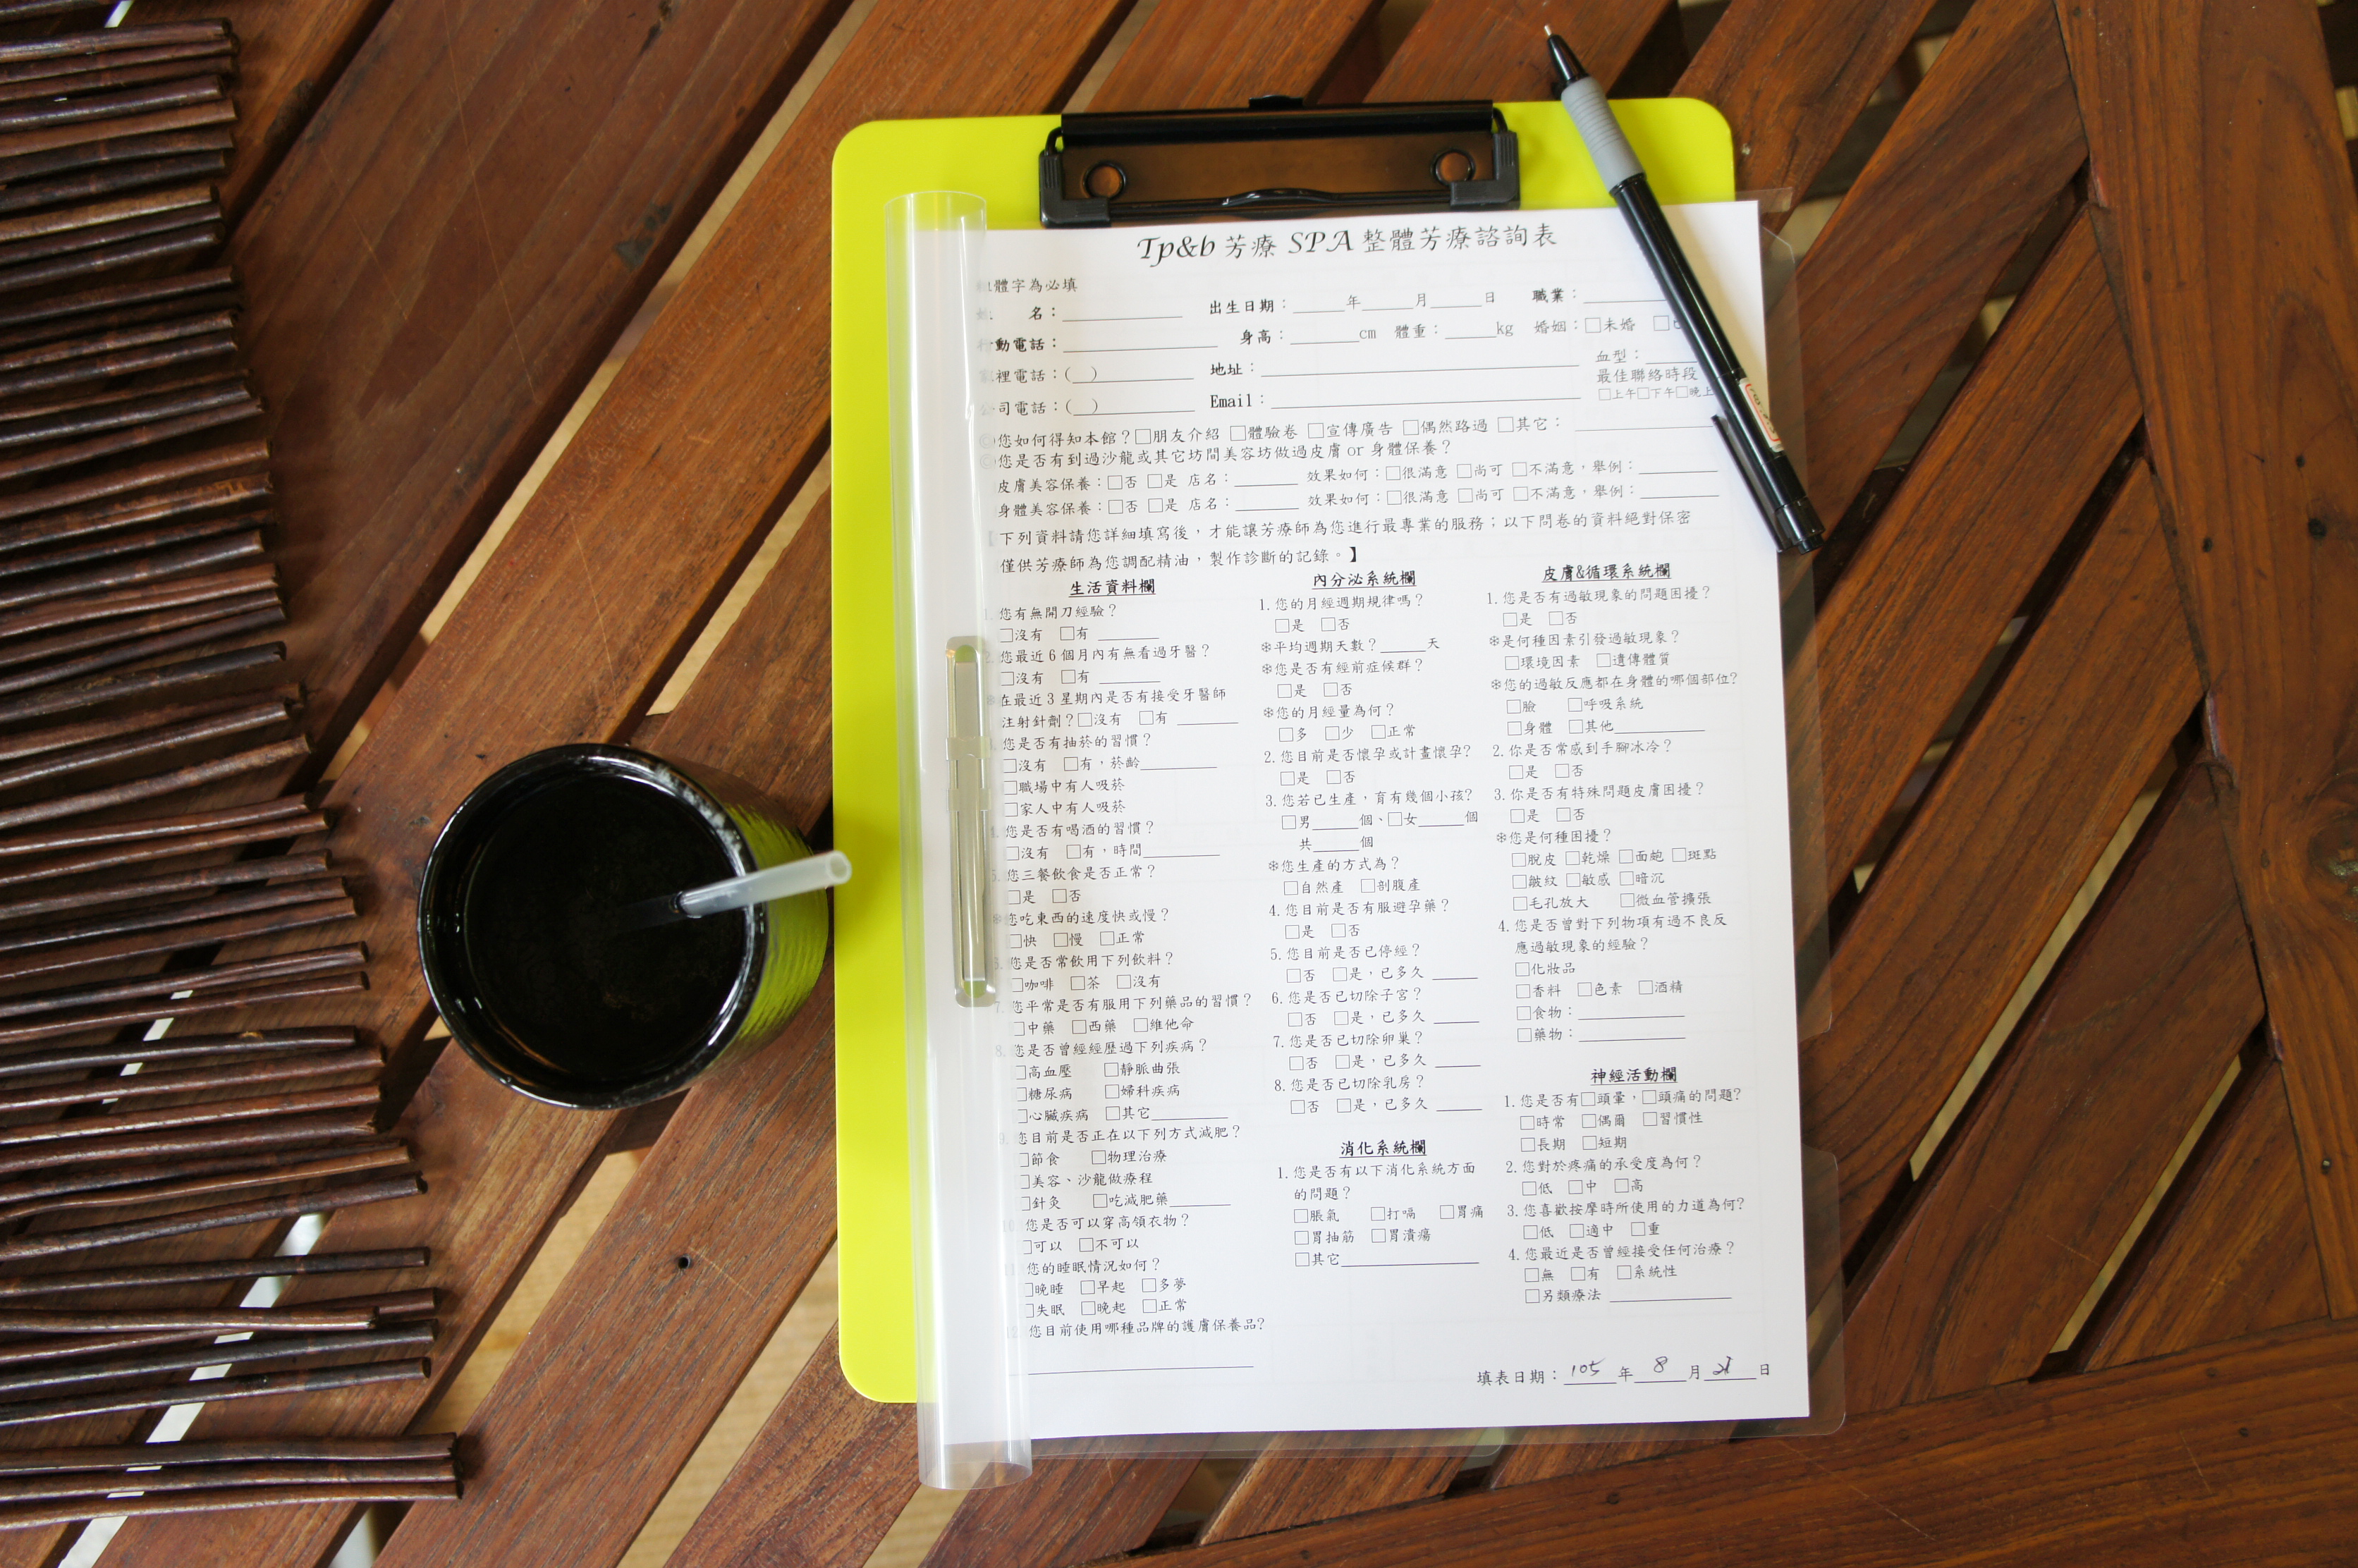 Tp&b 芳療 SPA 整體芳療諮詢表
體字為必填
名：______ 出生日期：____年____月____日 職業：______
動電話：______ 身高：____cm 體重：____kg 婚姻：□未婚 □
裡電話：(__)______ 地址：______ 血型：____
最佳聯絡時段
司電話：(__)______ Email：______ □上午□下午□晚上
◎您如何得知本館？□朋友介紹 □體驗卷 □宣傳廣告 □偶然路過 □其它：______
◎您是否有到過沙龍或其它坊間美容坊做過皮膚 or 身體保養？
皮膚美容保養：□否 □是 店名：____ 效果如何：□很滿意 □尚可 □不滿意，舉例：____
身體美容保養：□否 □是 店名：____ 效果如何：□很滿意 □尚可 □不滿意，舉例：____
【下列資料請您詳細填寫後，才能讓芳療師為您進行最專業的服務；以下問卷的資料絕對保密
僅供芳療師為您調配精油，製作診斷的記錄。】
生活資料欄
1.您有無開刀經驗？
□沒有 □有 ____
2.您最近 6 個月內有無看過牙醫？
□沒有 □有 ____
※在最近 3 星期內是否有接受牙醫師
注射針劑？□沒有 □有 ____
您是否有抽菸的習慣？
□沒有 □有，菸齡____
□職場中有人吸菸
□家人中有人吸菸
您是否有喝酒的習慣？
□沒有 □有，時間____
5.您三餐飲食是否正常？
□是 □否
※您吃東西的速度快或慢？
□快 □慢 □正常
6.您是否常飲用下列飲料？
□咖啡 □茶 □沒有
7.您平常是否有服用下列藥品的習慣？
□中藥 □西藥 □維他命
8.您是否曾經經歷過下列疾病？
□高血壓 □靜脈曲張
□糖尿病 □婦科疾病
□心臟疾病 □其它____
9.您目前是否正在以下列方式減肥？
□節食 □物理治療
□美容、沙龍做療程
□針灸 □吃減肥藥____
10.您是否可以穿高領衣物？
□可以 □不可以
11.您的睡眠情況如何？
□晚睡 □早起 □多夢
□失眠 □晚起 □正常
12.您目前使用哪種品牌的護膚保養品?
內分泌系統欄
1.您的月經週期規律嗎？
□是 □否
※平均週期天數？____天
※您是否有經前症候群？
□是 □否
※您的月經量為何？
□多 □少 □正常
2.您目前是否懷孕或計畫懷孕?
□是 □否
3.您若已生產，育有幾個小孩?
□男____個、□女____個
共____個
※您生產的方式為？
□自然產 □剖腹產
4.您目前是否有服避孕藥？
□是 □否
5.您目前是否已停經？
□否 □是，已多久 ____
6.您是否已切除子宮？
□否 □是，已多久 ____
7.您是否已切除卵巢？
□否 □是，已多久 ____
8.您是否已切除乳房？
□否 □是，已多久 ____
消化系統欄
1.您是否有以下消化系統方面
的問題？
□脹氣 □打嗝 □胃痛
□胃抽筋 □胃潰瘍
□其它____
皮膚&循環系統欄
1.您是否有過敏現象的問題困擾？
□是 □否
※是何種因素引發過敏現象？
□環境因素 □遺傳體質
※您的過敏反應都在身體的哪個部位?
□臉 □呼吸系統
□身體 □其他____
2.你是否常感到手腳冰冷？
□是 □否
3.你是否有特殊問題皮膚困擾？
□是 □否
※您是何種困擾？
□脫皮 □乾燥 □面皰 □斑點
□皺紋 □敏感 □暗沉
□毛孔放大 □微血管擴張
4.您是否曾對下列物項有過不良反
應過敏現象的經驗？
□化妝品
□香料 □色素 □酒精
□食物：____
□藥物：____
神經活動欄
1.您是否有□頭暈，□頭痛的問題?
□時常 □偶爾 □習慣性
□長期 □短期
2.您對於疼痛的承受度為何？
□低 □中 □高
3.您喜歡按摩時所使用的力道為何?
□低 □適中 □重
4.您最近是否曾經接受任何治療？
□無 □有 □系統性
□另類療法 ____
填表日期：105年8月21日